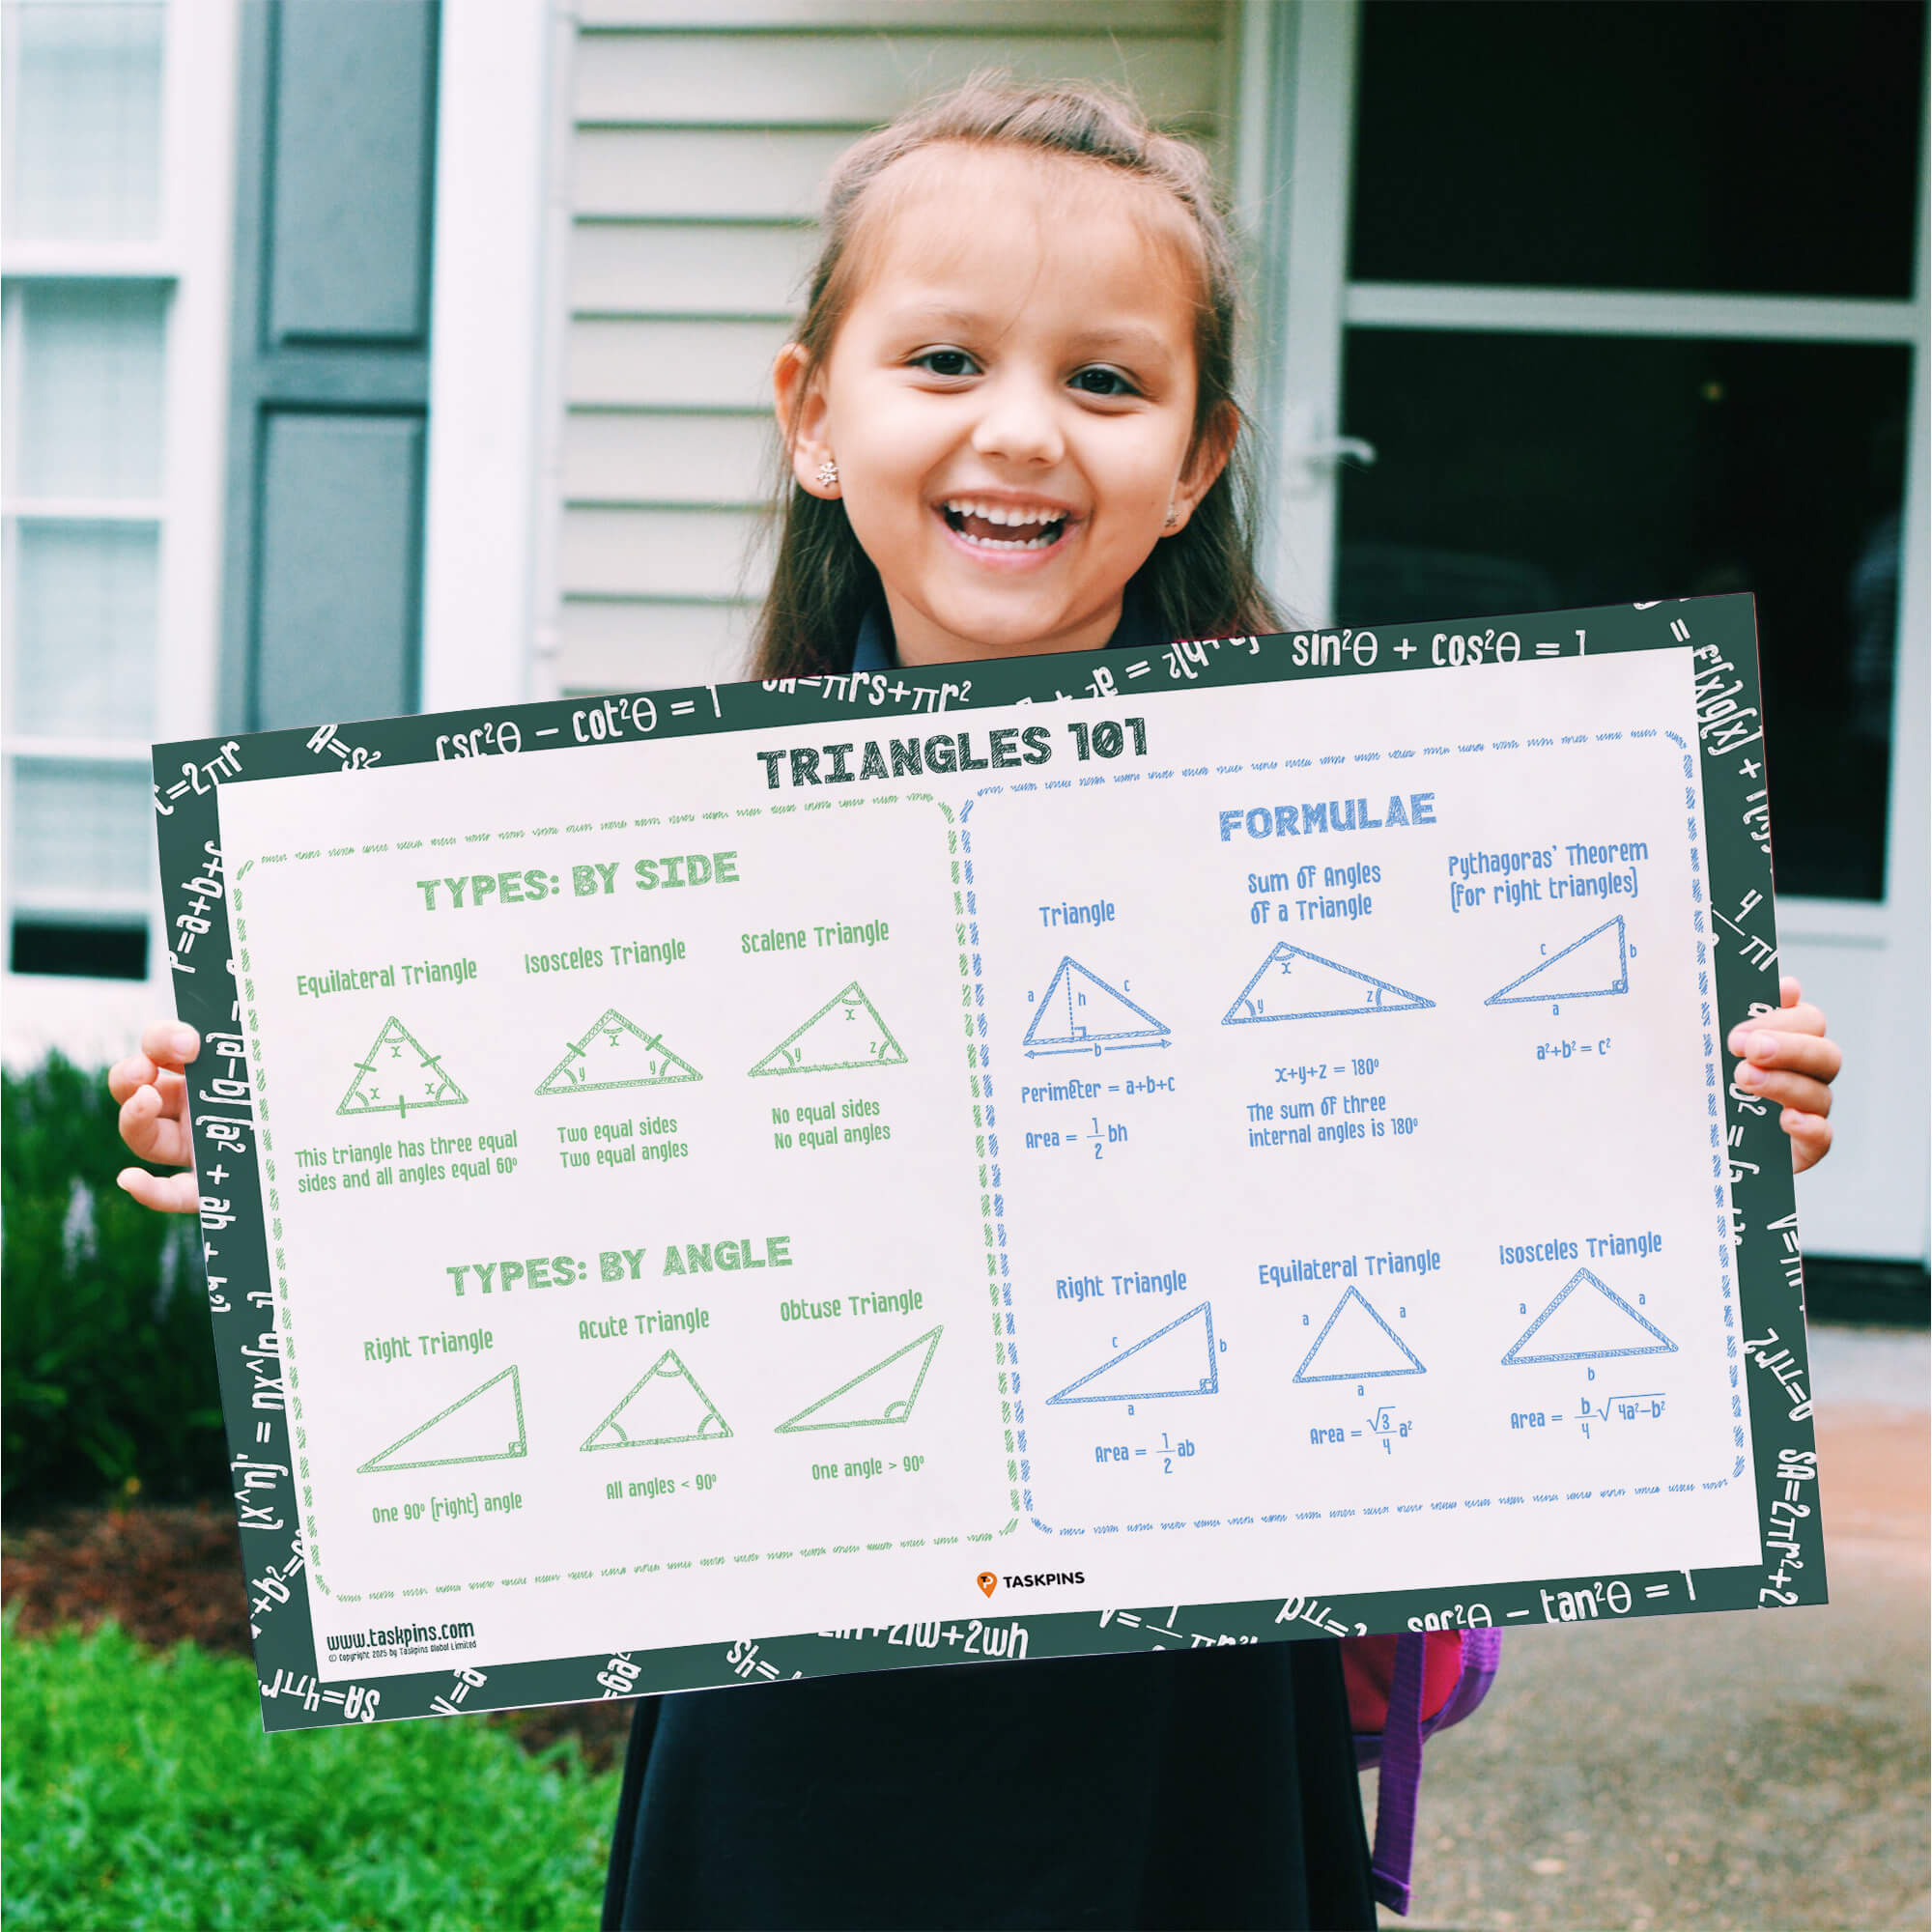 csc²θ − cot²θ = 1
sin²θ + cos²θ = 1
TRIANGLES 101
TYPES: BY SIDE
Equilateral Triangle
x
x
x
This triangle has three equal
sides and all angles equal 60º
Isosceles Triangle
x
y
y
Two equal sides
Two equal angles
Scalene Triangle
x
y
z
No equal sides
No equal angles
TYPES: BY ANGLE
Right Triangle
One 90º (right) angle
Acute Triangle
All angles < 90º
Obtuse Triangle
One angle > 90º
FORMULAE
Triangle
a
h
c
b
Perimeter = a+b+c
Area = 1/2 bh
Sum of Angles
of a Triangle
x
y
z
x+y+z = 180º
The sum of three
internal angles is 180º
Pythagoras' Theorem
(for right triangles)
c
b
a
a²+b² = c²
Right Triangle
c
b
a
Area = 1/2 ab
Equilateral Triangle
a
a
a
Area = √3/4 a²
Isosceles Triangle
a
a
b
Area = b/4 √4a²−b²
TASKPINS
www.taskpins.com
© Copyright 2025 by Taskpins Global Limited
sec²θ − tan²θ = 1